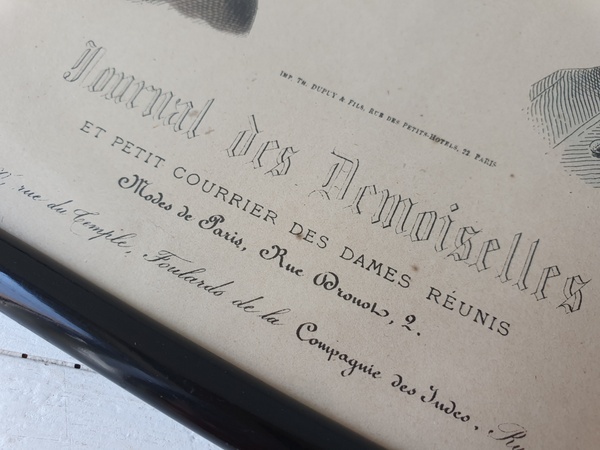 IMP. TH. DUPUY & FILS, RUE DES PETITS-HOTELS, 22 PARIS
Journal des Demoiselles
ET PETIT COURRIER DES DAMES RÉUNIS
Modes de Paris, Rue Drouot, 2.
rue du Temple, Foulards de la Compagnie des Indes,